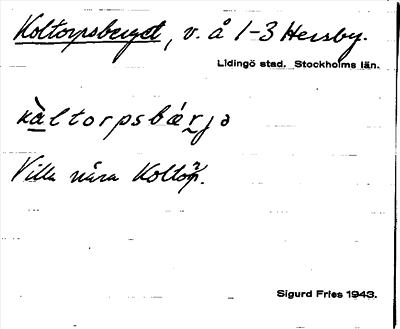 Koltorpsberget, v. å 1-3 Hersby.
Lidingö stad. Stockholms län.
kàltorpsbǽrjə
Villa nära Koltorp.
Sigurd Fries 1943.